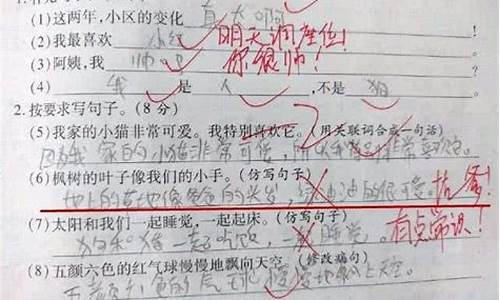 (1)这两年,小区的变化 真大啊
(2)我最喜欢 小红 明天调座位!
(3)阿姨,我 帅吧 你很帅!
(4) 我 是 人 ,不是 狗
2.按要求写句子。(8分)
(5)我家的小猫非常可爱。我特别喜欢它。(用关联词合成一句话)
因为我家的小猫非常可爱,所以我 非常喜欢它。
(6)枫树的叶子像我们的小手。(仿写句子)
地上的草地像爸爸的头发,绿油油的很 抗议!
(7)太阳和我们一起睡觉,一起起床。(仿写句子)
狗和猪一起吃饭,一起睡觉。 有点常识!
(8)五颜六色的红气球慢慢地飘向天空。(修改病句)
五颜六色的气球慢慢地飘上天空。